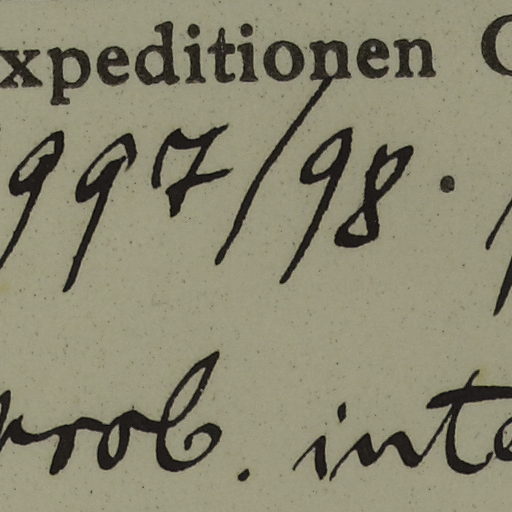 xpeditionen
997/98.
prob. inte